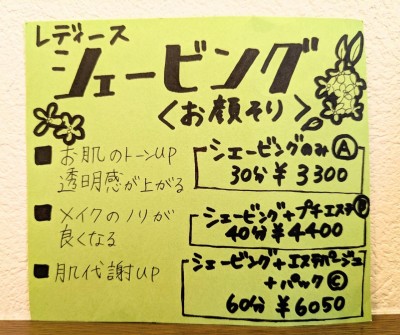 レディース
シェービング
<お顔そり>
■お肌のトーンUP
透明感が上がる
■メイクのノリが
良くなる
■肌代謝UP
シェービングのみ Ⓐ
30分 ¥3300
シェービング+プチエステ Ⓑ
40分 ¥4400
シェービング+エステ
+パック Ⓒ
60分 ¥6050